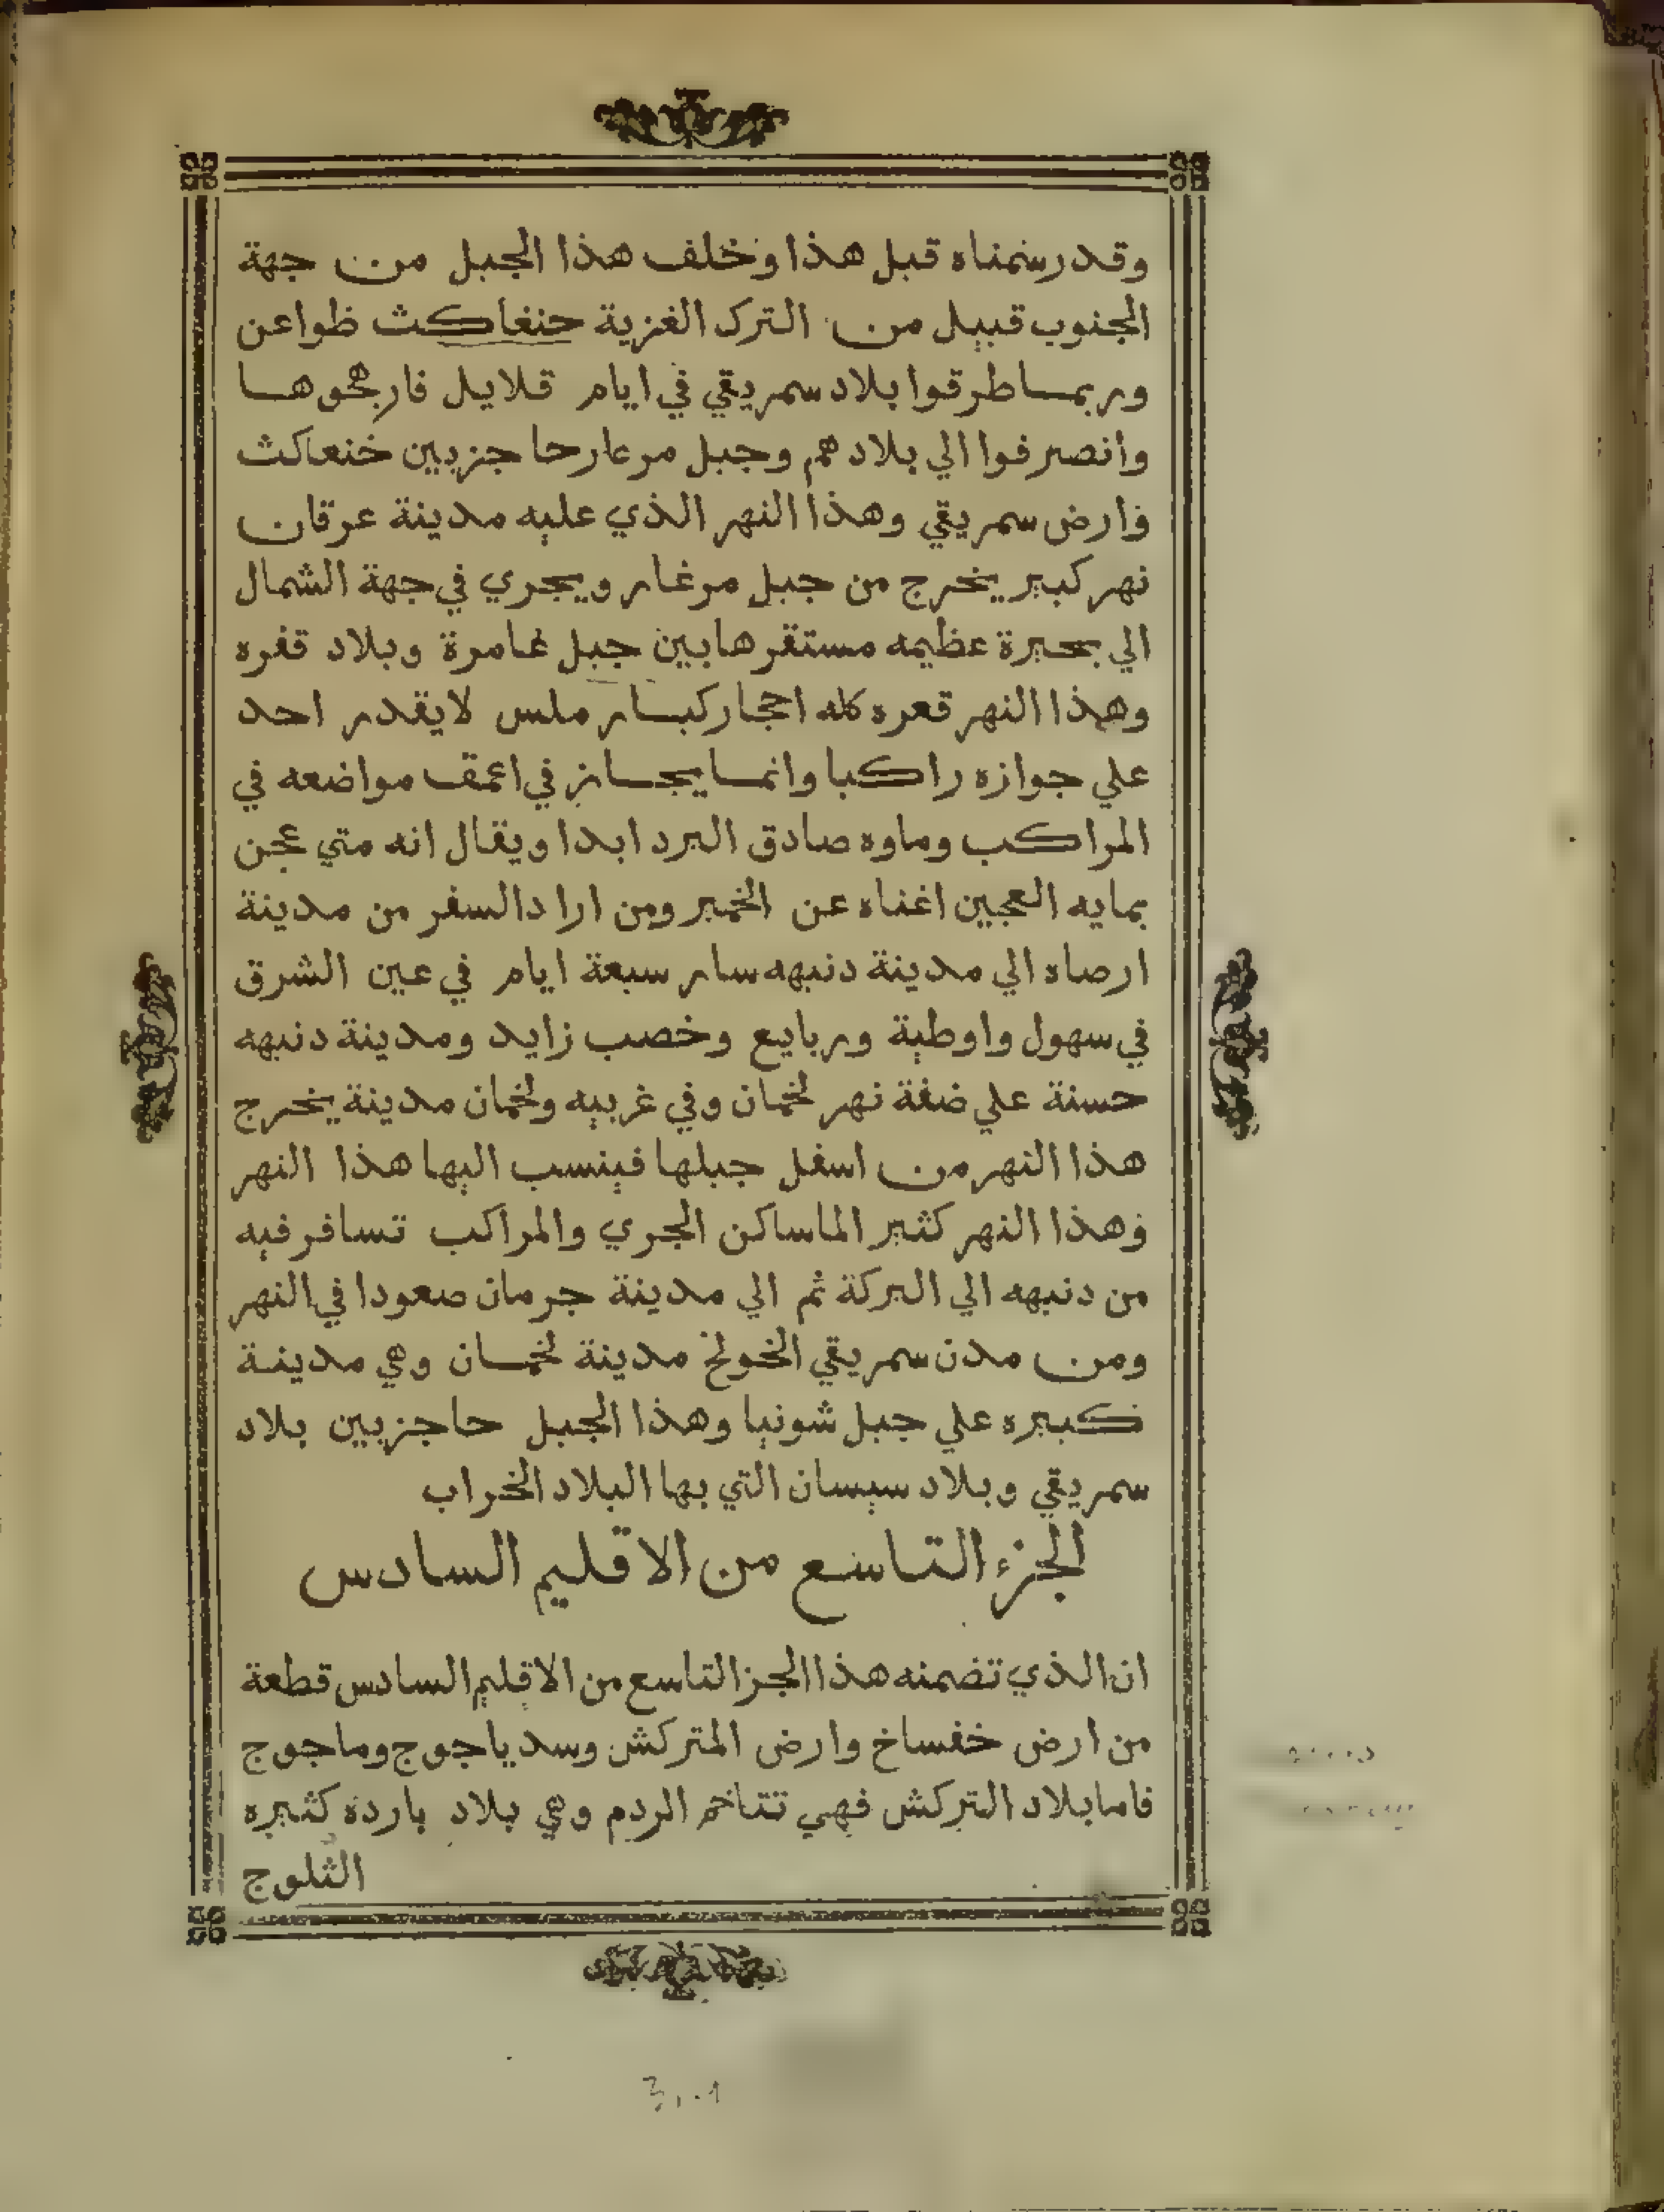 وقد رسمناه قبل هذا وخلف هذا الجبل من جهة
الجنوب قبيل من الترك الغزية خنغاكث ظواعن
وربما طرقوا بلاد سمريقي في ايام قلايل فارجحوها
وانصرفوا الي بلادهم وجبل مرعار حاجز بين خنعاكث
وارض سمريقي وهذا النهر الذي عليه مدينة عرقان
نهر كبير يخرج من جبل مرغار ويجري في جهة الشمال
الي بحيرة عظيمه مستقرها بين جبل غامرة وبلاد قفره
وهذا النهر قعره كله احجار كبار ملس لا يقدر احد
علي جوازه راكبا وانما يجاز في اعمق مواضعه في
المراكب وماوه صادق البرد ابدا ويقال انه متي عجن
بمايه العجين اغناه عن الخمير ومن اراد السفر من مدينة
ارصاه الي مدينة دنبهه سار سبعة ايام في عين الشرق
في سهول واوطية وربايع وخصب زايد ومدينة دنبهه
حسنة علي ضفة نهر لخمان وفي غربيه ولخمان مدينة يخرج
هذا النهر من اسفل جبلها فينسب اليها هذا النهر
وهذا النهر كثير الما ساكن الجري والمراكب تسافر فيه
من دنبهه الي البركة ثم الي مدينة جرمان صعودا في النهر
ومن مدن سمريقي الخولخ مدينة لخمان وهي مدينة
كبيره علي جبل شونيا وهذا الجبل حاجز بين بلاد
سمريقي وبلاد سيسان التي بها البلاد الخراب
الجزء التاسع من الاقليم السادس
ان الذي تضمنه هذا الجز التاسع من الاقليم السادس قطعة
من ارض خفساخ وارض المتركش وسد ياجوج وماجوج
فاما بلاد التركش فهي تتاخم الردم وهي بلاد بارده كثيره
الثلوج